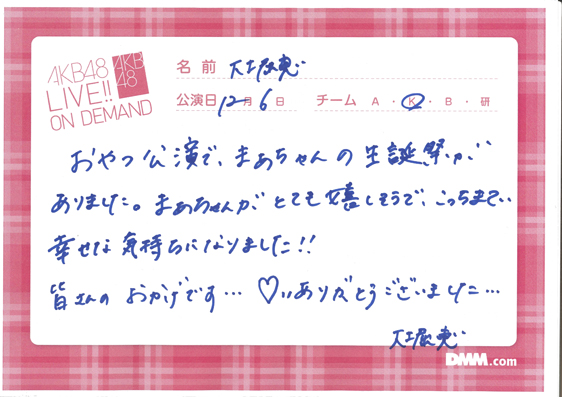 AKB48
LIVE!!
ON DEMAND
AKB
48
名前
公演日 12月6日 チーム A・K・B・研
おやつ公演で、まぁちゃんの生誕祭が
ありました。まぁちゃんが、とても嬉しそうで、こっちまで
幸せな気持ちになりました!!
皆さんのおかげです…♡いありがとうございました…
DMM.com